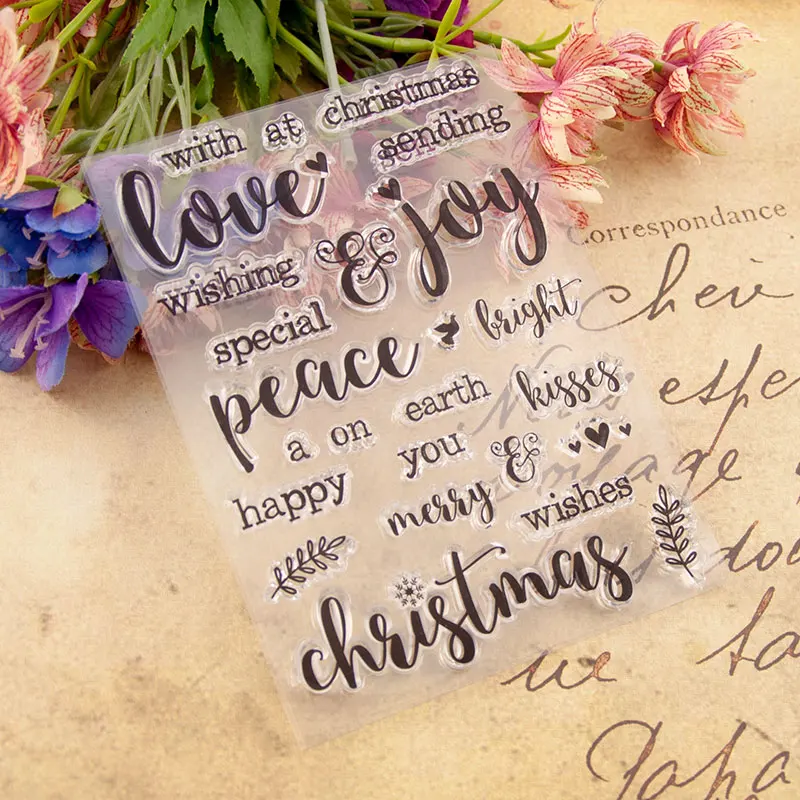 with at christmas
sending
love & joy
wishing
special
bright
peace
earth kisses
a on
you &
happy
merry wishes
christmas
Correspondance